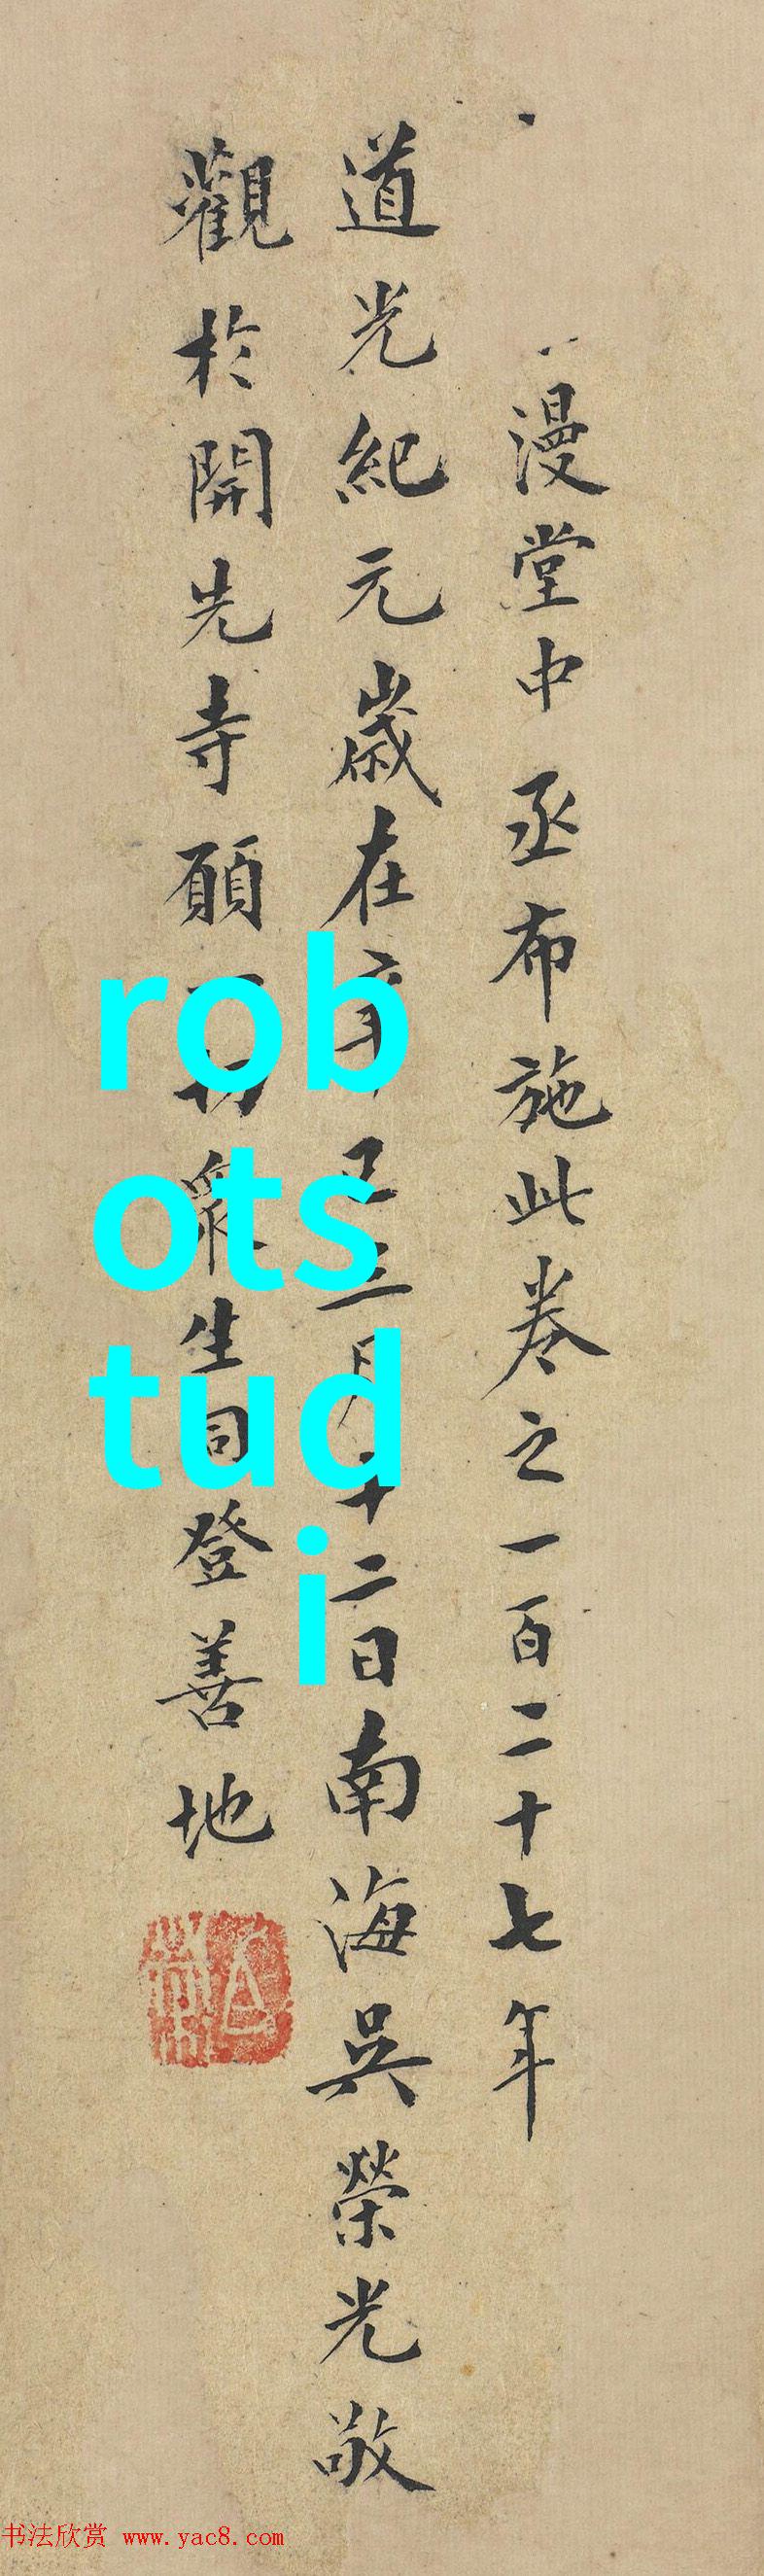 漫堂中丞布施此卷之一百二十七年
道光紀元歲在辛巳三月十二日南海吳榮光敬
觀於開先寺願一切衆生同登善地
rob
ots
tud
i
书法欣赏 www.yac8.com